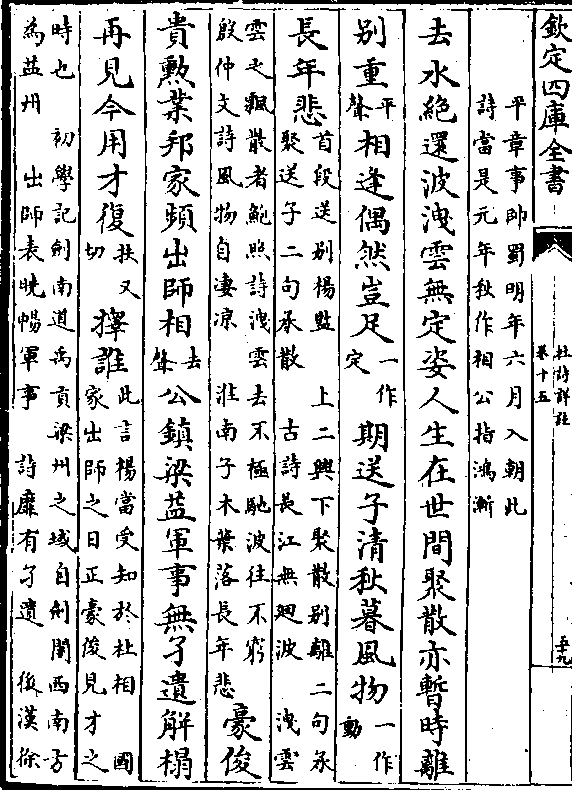 欽定四庫全書
杜詩詳註
卷十五
五十九
平章事帥蜀明年六月入朝此
詩當是元年秋作相公指鴻漸
去水絕還波洩雲無定姿人生在世間聚散亦暫時離
别重平聲相逢偶然豈足一作定期送子清秋暮風物一作動
長年悲首段送别楊監 上二興下聚散别離二句承
聚送子二句承散 古詩長江無廻波 洩雲
雲之飄散者鮑照詩洩雲去不極馳波往不窮
殷仲文詩風物自凄凉 淮南子木葉落長年悲豪俊
貴勲業邦家頻出師相去聲公鎮梁益軍事無孑遺解榻
再見今用才復扶又切擇誰此言楊當受知於杜相 國
家出師之日正豪俊見才之
時也 初學記劍南道禹貢梁州之域自劍閣西南方
為益州 出師表曉暢軍事 詩靡有孑遺 後漢徐